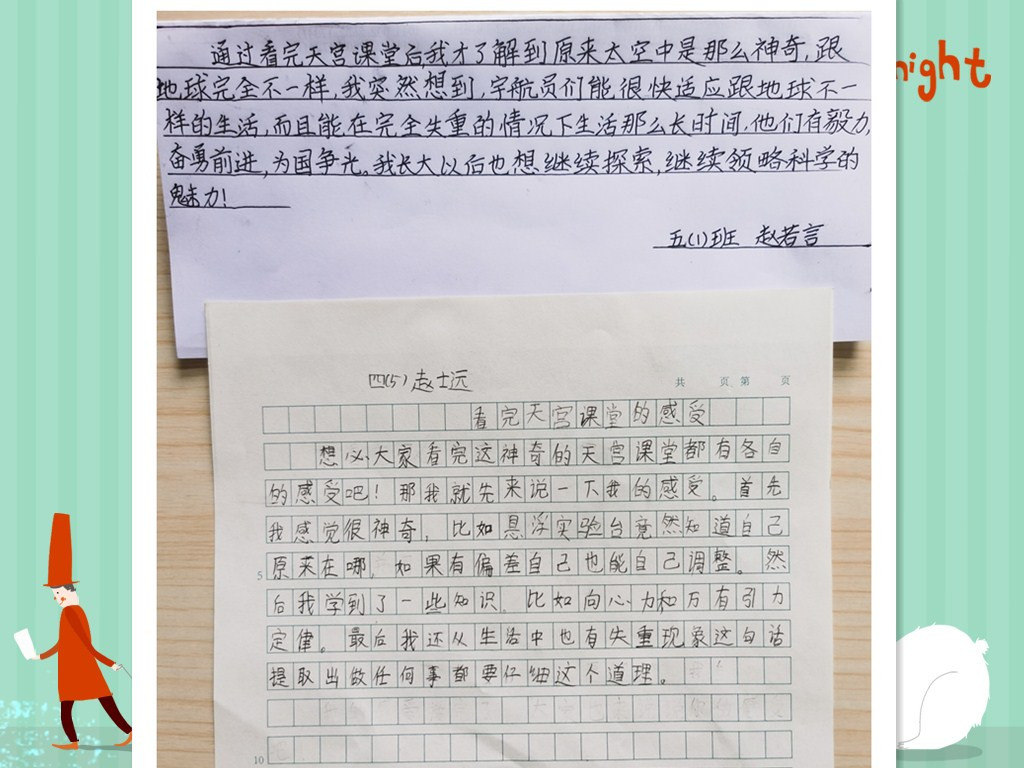 night
通过看完天宫课堂后,我才了解到原来太空中是那么神奇,跟
地球完全不一样,我突然想到,宇航员们能很快适应跟地球不一
样的生活,而且能在完全失重的情况下生活那么长时间,他们有毅力,
奋勇前进,为国争光。我长大以后也想继续探索,继续领略科学的
魅力!
五(1)班 赵若言
四(5) 赵士远
共 页 第 页
看完天宫课堂的感受
想必大家看完这神奇的天宫课堂都有各自
的感受吧!那我就先来说一下我的感受。首先
我感觉很神奇,比如悬浮实验台竟然知道自己
5 原来在哪,如果有偏差自己也能自己调整。然
后我学到了一些知识,比如向心力和万有引力
定律。最后我还从生活中也有失重现象这句话
提取出做任何事都要仔细这个道理。
10